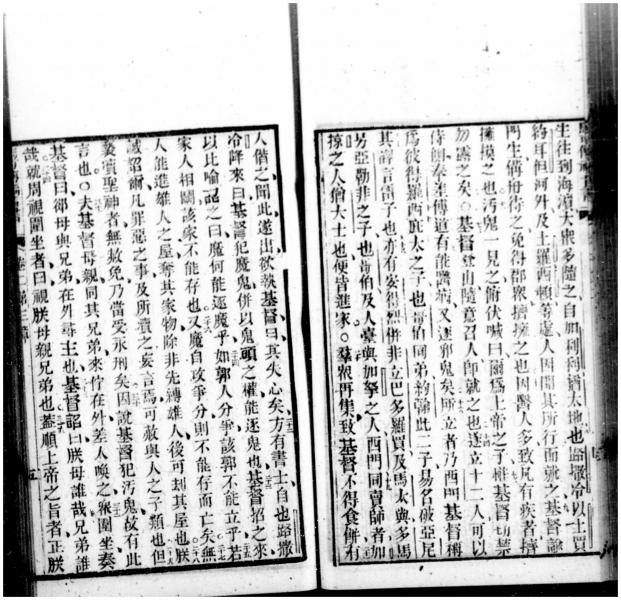 生往到海濱大衆多隨之自加利利猶太地也路撒冷以士買
約耳但河外及土羅西頓等處人因聞其所行而就之基督諭
門生備舟待之免得郡衆擠擁之也因醫人多致凡有疾者擠
擁摸之也汚鬼一見之俯伏喊曰爾爲上帝之子惟基督切禁
勿露之矣○基督登山隨意召人卽就之也遂立十二人可以
侍側奉差傳道有能醫病又逐邪鬼矣所立者乃西門基督稱
爲彼得羅西庇太之子也哥伯同弟約翰此二子易名破亞尼
其譯言雷子也亦有安得烈併非立巴多羅買及馬太與多馬
另亞勒非之子也哥伯及人臺與加拏之人西門同賣師者加
掠之人猶大士也便皆進家○羣衆再集致基督不得食併有
人僭之聞此遂出欲執基督曰其失心矣方有書士自也路撒
冷降來曰基督犯魔鬼併以鬼頭之權能逐鬼也基督招之來
以比喻詔之曰魔何能逐魔乎如郭人分爭該郭不能立乎若
家人相鬬該家不能存也又魔自攻爭分則不能存而亡矣無
人能進雄人之屋奪其家物除非先縛雄人後可刦其屋也朕
誠詔爾凡罪惡之事及所瀆之妄言焉可赦與人之子類也但
妄瀆聖神者無赦免乃當受永刑矣因說基督犯汚鬼故有此
言也○夫基督母親同其兄弟來佇在外差人喚之衆圍坐奏
基督曰卻母與兄弟在外尋主也基督詔曰朕母誰哉兄弟誰
哉就周視圍坐者曰視朕母親兄弟也蓋順上帝之旨者正朕
五